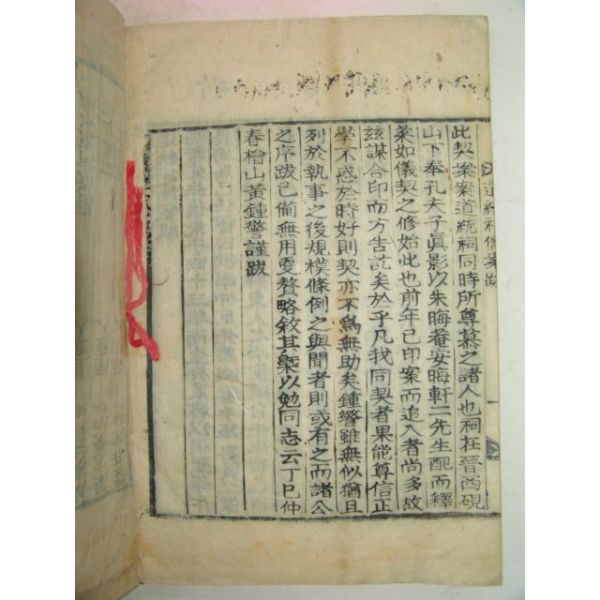 道統祠儒契案跋
此契案案道統祠同時所尊慕之諸人也祠在晉西硯
山下奉孔夫子眞影以朱晦菴安晦軒二先生配而釋
菜如儀契之修始此也前年已印案而追入者尚多故
玆謀合印而方告訖矣於乎凡我同契者果能尊信正
學不惑於時好則契亦不爲無助矣鍾瑩雖無似猶且
列於執事之後規模條例之與聞者則或有之而諸公
之序跋已備無用更贅略敘其槩以勉同志云丁巳仲
春檜山黃鍾瑩謹跋